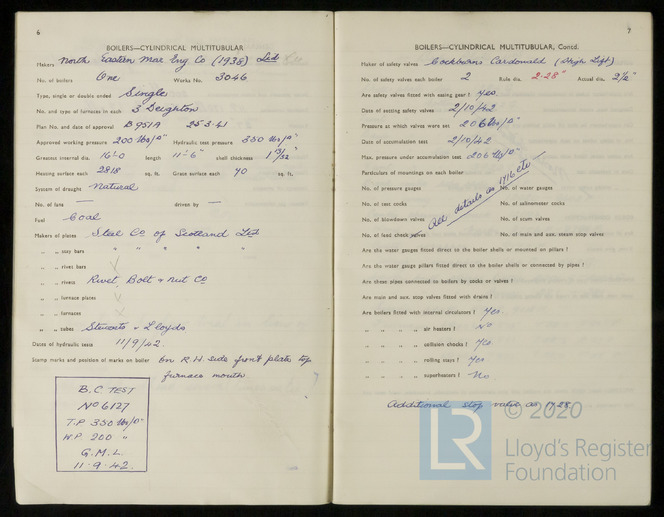 6
BOILERS—CYLINDRICAL MULTITUBULAR
Makers North Eastern Mar Eng Co (1938) Ltd
No. of boilers One Works No. 3046
Type, single or double ended Single
No. and type of furnaces in each 3 Deighton
Plan No. and date of approval B951A 25·3·41
Approved working pressure 200 lbs/□" Hydraulic test pressure 350 lbs/□"
Greatest internal dia. 16'-0 length 11'-6" shell thickness 1 13/32"
Heating surface each 2818 sq. ft. Grate surface each 70 sq. ft.
System of draught Natural
No. of fans — driven by —
Fuel Coal
Makers of plates Steel Co of Scotland Ltd
„ „ stay bars " " " " "
„ „ rivet bars
„ „ rivets Rivet, Bolt & Nut Co
„ „ furnace plates
„ „ furnaces
„ „ tubes Stewarts & Lloyds
Dates of hydraulic tests 11/9/42.
Stamp marks and position of marks on boiler On R.H. side front plate top
furnace mouth.
B.C. TEST
No 6127
T.P 350 lbs/□"
W.P. 200 "
G.M.L.
11-9-42.
7
BOILERS—CYLINDRICAL MULTITUBULAR, Contd.
Maker of safety valves Cockburns Cardonald (High Lift)
No. of safety valves each boiler 2 Rule dia. 2·28" Actual dia. 2½"
Are safety valves fitted with easing gear? Yes
Date of setting safety valves 2/10/42
Pressure at which valves were set 206 lbs/□"
Date of accumulation test 2/10/42
Max. pressure under accumulation test 206 lbs/□"
Particulars of mountings on each boiler
No. of pressure gauges No. of water gauges
No. of test cocks No. of salinometer cocks
No. of blowdown valves No. of scum valves
No. of feed check valves No. of main and aux. steam stop valves
All details as 1716 etc
Are the water gauges fitted direct to the boiler shells or mounted on pillars?
Are the water gauge pillars fitted direct to the boiler shells or connected by pipes?
Are these pipes connected to boilers by cocks or valves?
Are main and aux. stop valves fitted with drains?
Are boilers fitted with internal circulators? Yes.
„ „ „ „ air heaters? No
„ „ „ „ collision chocks? Yes
„ „ „ „ rolling stays? Yes
„ „ „ „ superheaters? No
Additional stop valve as 1728
LR © 2020
Lloyd's Register
Foundation